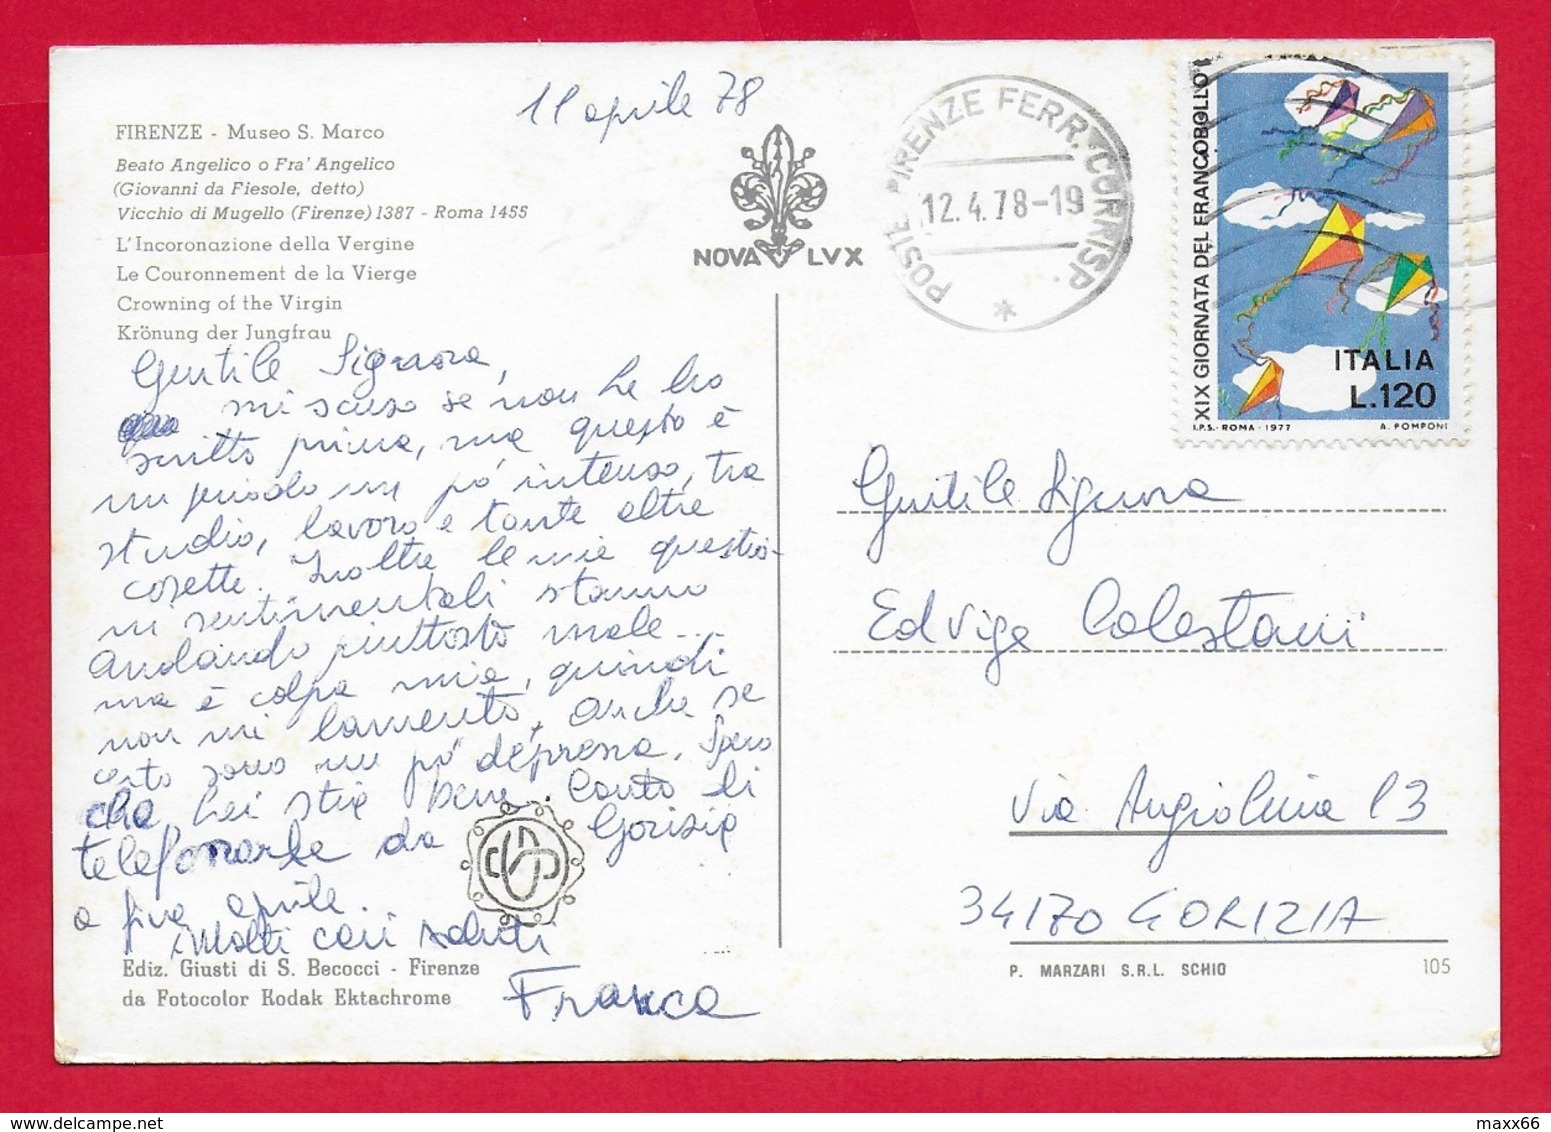 11 aprile 78
FIRENZE - Museo S. Marco
Beato Angelico o Fra' Angelico
(Giovanni da Fiesole, detto)
Vicchio di Mugello (Firenze) 1387 - Roma 1455
L'Incoronazione della Vergine
Le Couronnement de la Vierge
Crowning of the Virgin
Krönung der Jungfrau
Gentile Signora,
mi scuso se non Le ho
scritto prima, ma questo è
un periodo un pó intenso, tra
studio, lavoro e tante altre
cosette. Inoltre le mie questio-
ni sentimentali stanno
andando piuttosto male...
ma è colpa mia, quindi
non mi lamento, anche se
certo sono un pó depressa. Spero
che Lei stia bene. Conto di
telefonarle da Gorizia
a fine aprile.
Molti cari saluti
Franca
Ediz. Giusti di S. Becocci - Firenze
da Fotocolor Kodak Ektachrome
NOVA LVX
POSTE FIRENZE FERR. CORRISP.
12.4.78-19
XIX GIORNATA DEL FRANCOBOLLO
ITALIA
L.120
I.P.S. - ROMA - 1977 A. POMPONI
Gentile Signora
Edvige Colestani
Via Angiolina 13
34170 GORIZIA
P. MARZARI S.R.L. SCHIO 105
maxx66